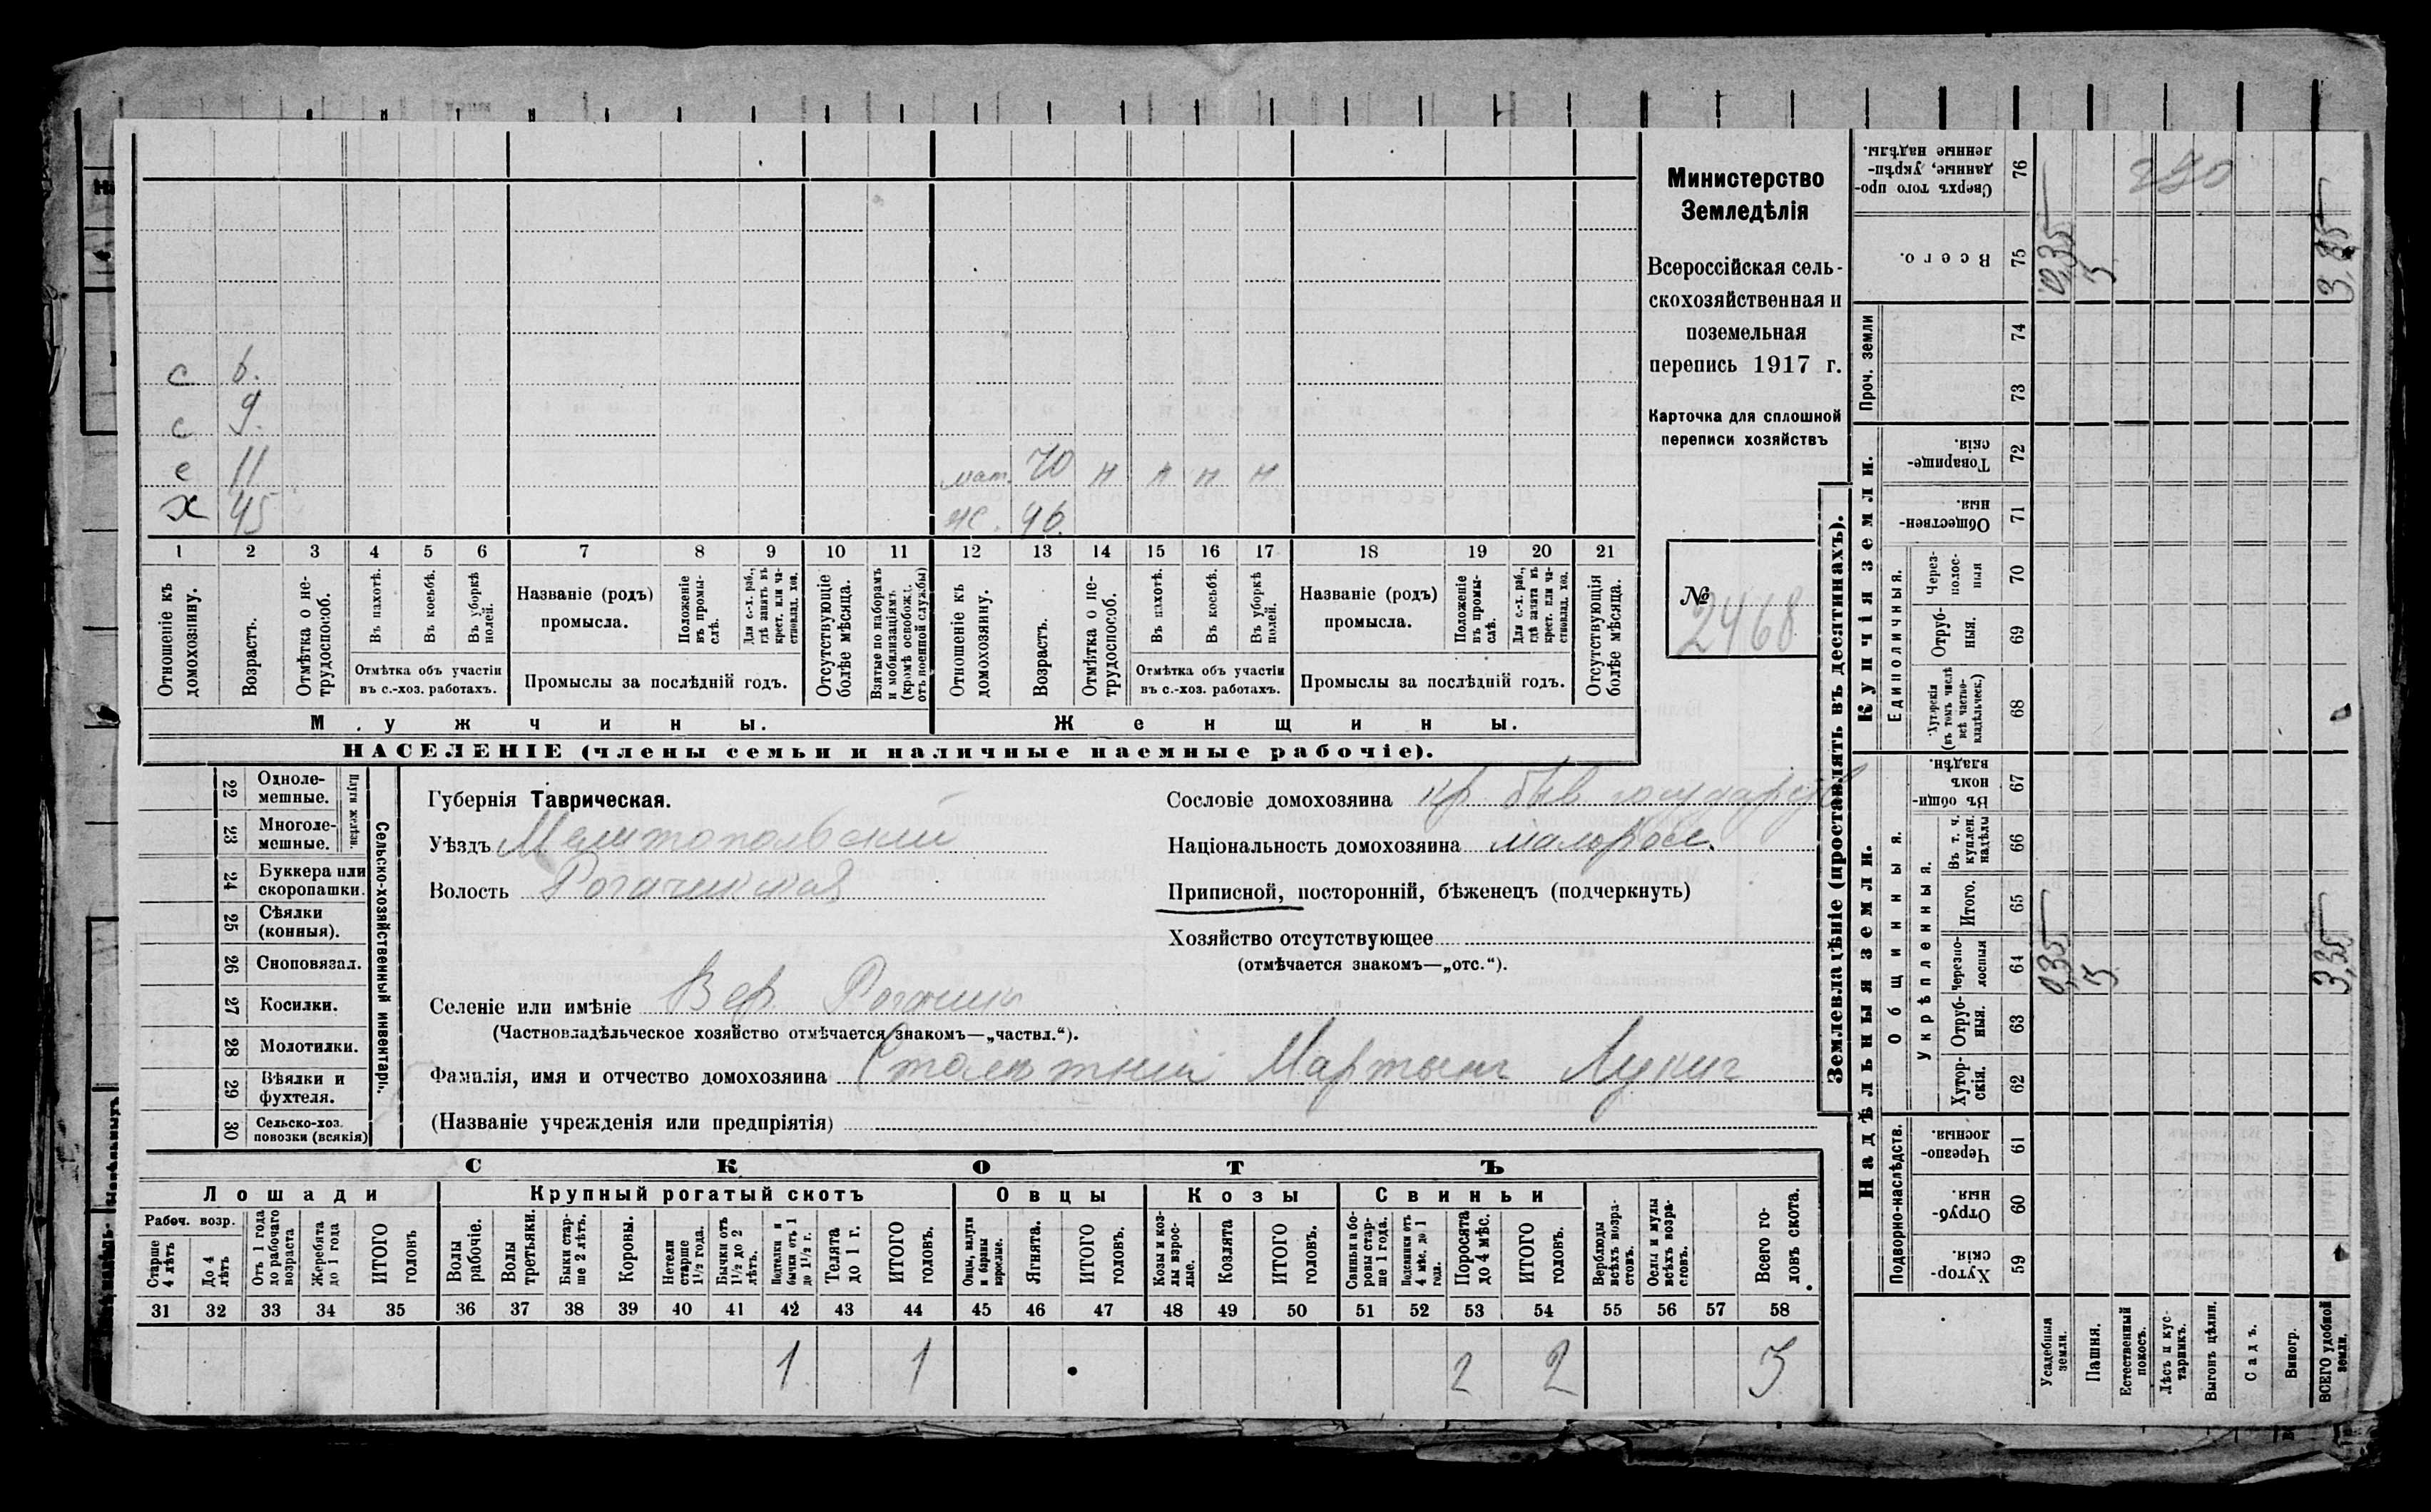 с 6.
с 9.
с 11 мат. 70 н н н н
х 45 ж. 46.
1 2 3 4 5 6 7 8 9 10 11 12 13 14 15 16 17 18 19 20 21
Отношеніе къ домохозяину.
Возрастъ.
Отмѣтка о не-трудоспособ.
Въ пахотѣ.
Въ косьбѣ.
Въ уборкѣ полей.
Отмѣтка объ участіи
въ с.-хоз. работахъ.
Названіе (родъ)
промысла.
Положеніе въ промы-слѣ.
Для с.-х. раб., гдѣ занятъ въ крест. или ча-стновлад. хоз.
Промыслы за послѣдній годъ.
Отсутствующіе болѣе мѣсяца.
Взятые по наборамъ и мобилизаціямъ (кромѣ освобожд. отъ военной службы)
Отношеніе къ домохозяину.
Возрастъ.
Отмѣтка о не-трудоспособ.
Въ пахотѣ.
Въ косьбѣ.
Въ уборкѣ полей.
Отмѣтка объ участіи
въ с.-хоз. работахъ.
Названіе (родъ)
промысла.
Положеніе въ промы-слѣ.
Для с.-х. раб., гдѣ занята въ крест. или ча-стновлад. хоз.
Промыслы за послѣдній годъ.
Отсутствующія болѣе мѣсяца.
Мужчины. Женщины.
НАСЕЛЕНІЕ (члены семьи и наличные наемные рабочіе).
Министерство
Земледѣлія
Всероссійская сель-
скохозяйственная и
поземельная
перепись 1917 г.
Карточка для сплошной
переписи хозяйствъ
№
2468
22 Одноле-мешные.
23 Многоле-мешные.
Плуги желѣзн.
24 Буккера или скоропашки.
25 Сѣялки (конныя).
26 Сноповязал.
27 Косилки.
28 Молотилки.
29 Вѣялки и фухтеля.
30 Сельско-хоз. повозки (всякія)
Сельско-хозяйственный инвентарь.
Губернія Таврическая.
Уѣздъ Мелитопольскій
Волость Рогачикская
Селеніе или имѣніе Вер. Рогачик
(Частновладѣльческое хозяйство отмѣчается знакомъ—„частвл.“).
Фамилія, имя и отчество домохозяина Столѣтній Мартынъ Лукич
(Названіе учрежденія или предпріятія)
Сословіе домохозяина кр. быв. государств
Національность домохозяина малоросс.
Приписной, посторонній, бѣженецъ (подчеркнуть)
Хозяйство отсутствующее
(отмѣчается знакомъ—„отс.“).
СКОТЪ
Лошади Крупный рогатый скотъ Овцы Козы Свиньи
Рабоч. возр.
Старше 4 лѣтъ
До 4 лѣтъ
Отъ 1 года до рабочаго возраста
Жеребята до 1 года
ИТОГО головъ
Волы рабочіе.
Волы третьяки.
Быки стар-ше 2 лѣтъ.
Коровы.
Нетели старше 1½ года.
Бычки отъ 1½ до 2 лѣтъ.
Подтелки и бычки отъ 1 до 1½ г.
Телята до 1 г.
ИТОГО головъ.
Овцы, валухи и бараны взрослые.
Ягнята.
ИТОГО головъ.
Козы и коз-лы взрос-лые.
Козлята
ИТОГО головъ.
Свиньи и бо-ровы стар-ше 1 года.
Подсвинки отъ 4 мѣс. до 1 года.
Поросята до 4 мѣс.
ИТОГО головъ.
Верблюды всѣхъ возра-стовъ.
Ослы и мулы всѣхъ возра-стовъ.
Всего го-ловъ скота.
31 32 33 34 35 36 37 38 39 40 41 42 43 44 45 46 47 48 49 50 51 52 53 54 55 56 57 58
1 1 2 2 3
Землевладѣніе (проставлять въ десятинахъ).
Надѣльныя земли. Купчія земли. Проч. земли
Подворно-наслѣдств.
Общинныя.
Укрѣпленныя.
Единоличныя.
Хутор-скія. 59
Отруб-ныя. 60
Черезпо-лосныя. 61
Хутор-скія. 62
Отруб-ныя. 63
Черезпо-лосныя 64
Итого. 65
Въ т. ч. куплен. надѣлы 66
Въ общин-номъ владѣн. 67
Хуторскія (въ томъ числѣ всѣ частно-владѣльческ.) 68
Отруб-ныя. 69
Через-полос-ныя 70
Обществен-ныя 71
Товарище-скія. 72
73
74
Всего. 75
Сверхъ того про-данные, укрѣп-ленные надѣлы. 76
Усадебныя земли. 0,35 0,35
Пашня. 3 3
Естественный покосъ.
Лѣсъ и кус-тарникъ.
Выгонъ цѣлин.
Садъ.
Виногр.
ВСЕГО удобной земли. 3,35 3,35